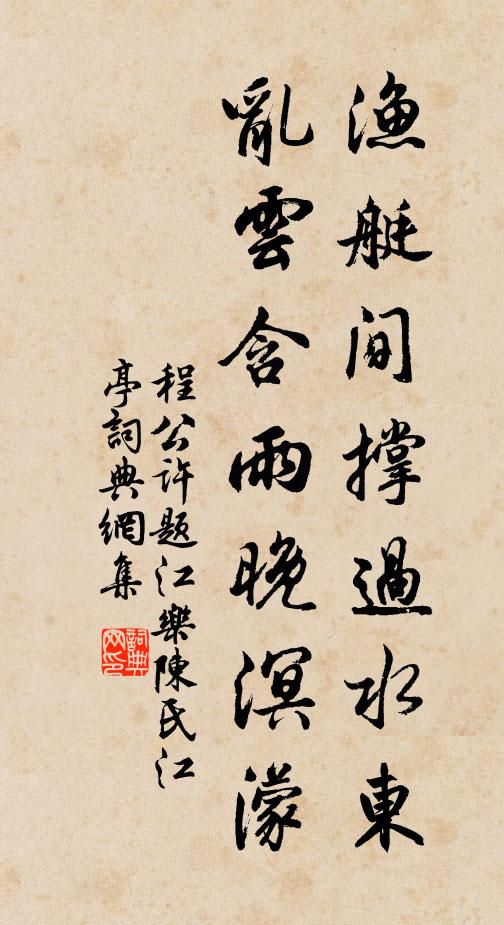 漁艇间撑過水東
亂雲含雨晚溟濛
程公许題江樂陳民江
亭詞典網集
詞典网印